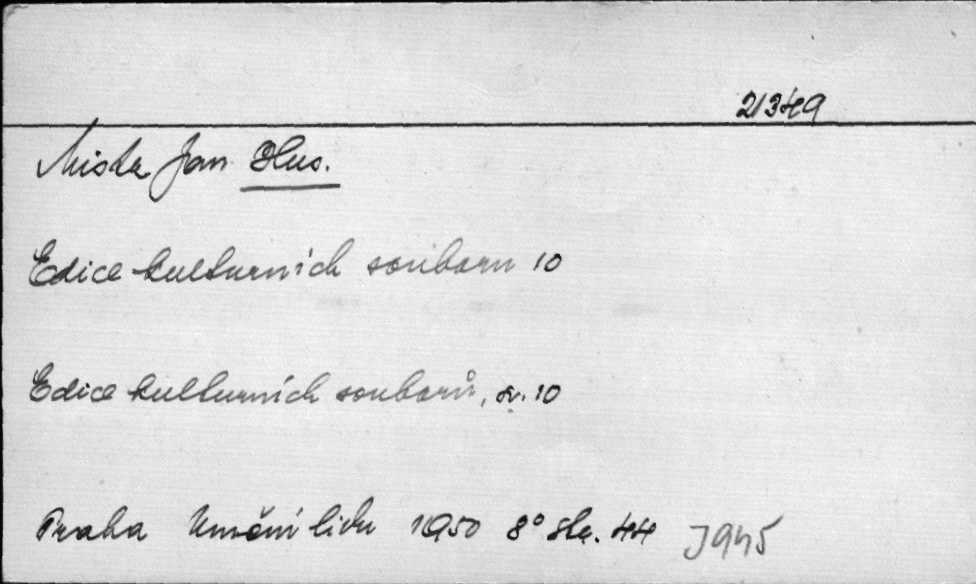 21349
Mistr Jan Hus.
Edice kulturních souboru 10
Edice kulturních souborů, sv. 10
Praha Umění lidu 1950 8° str. 44 J945